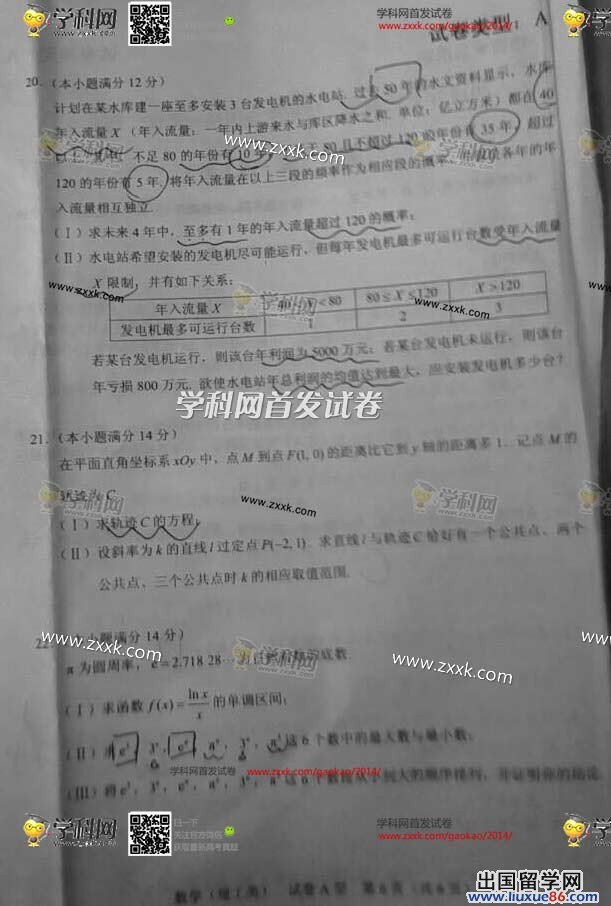 学科网首发试卷
www.zxxk.com/gaokao/2014/
试卷类型 A
20. (本小题满分 12 分)
计划在某水库建一座至多安装 3 台发电机的水电站. 过去 50 年的水文资料显示, 水库
年入流量 X (年入流量: 一年内上游来水与库区降水之和. 单位: 亿立方米) 都在 40
以上. 其中, 不足 80 的年份有 10 年, 不低于 80 且不超过 120 的年份有 35 年, 超过
120 的年份有 5 年. 将年入流量在以上三段的频率作为相应段的概率, 各年的年
入流量相互独立.
(Ⅰ) 求未来 4 年中, 至多有 1 年的年入流量超过 120 的概率;
(Ⅱ) 水电站希望安装的发电机尽可能运行, 但每年发电机最多可运行台数受年入流量
X 限制, 并有如下关系:
年入流量 X 40<X<80 80≤X≤120 X>120
发电机最多可运行台数 1 2 3
若某台发电机运行, 则该台年利润为 5000 万元; 若某台发电机未运行, 则该台
年亏损 800 万元. 欲使水电站年总利润的均值达到最大, 应安装发电机多少台?
学科网首发试卷
21. (本小题满分 14 分)
在平面直角坐标系 xOy 中, 点 M 到点 F(1, 0) 的距离比它到 y 轴的距离多 1. 记点 M 的
轨迹为 C.
(Ⅰ) 求轨迹 C 的方程;
(Ⅱ) 设斜率为 k 的直线 l 过定点 P(-2, 1). 求直线 l 与轨迹 C 恰好有一个公共点、两个
公共点、三个公共点时 k 的相应取值范围.
22. (本小题满分 14 分)
π 为圆周率, e = 2.718 28⋯ 为自然对数的底数.
(Ⅰ) 求函数 f(x) = ln x / x 的单调区间;
(Ⅱ) 求 e³, 3ᵉ, e^π, π^e, 3^π, π³ 这 6 个数中的最大数与最小数;
(Ⅲ) 将 e³, 3ᵉ, e^π, π^e, 3^π, π³ 这 6 个数按从小到大的顺序排列, 并证明你的结论.
学科网首发试卷
www.zxxk.com/gaokao/2014/
扫一下
关注官方微信
获取最新高考真题
学科网首发试卷
www.zxxk.com/gaokao/2014/
数学 (理工类) 试卷 A 型 第 6 页 (共 6 页)
学科网
www.zxxk.com
出国留学网
www.liuxue86.com